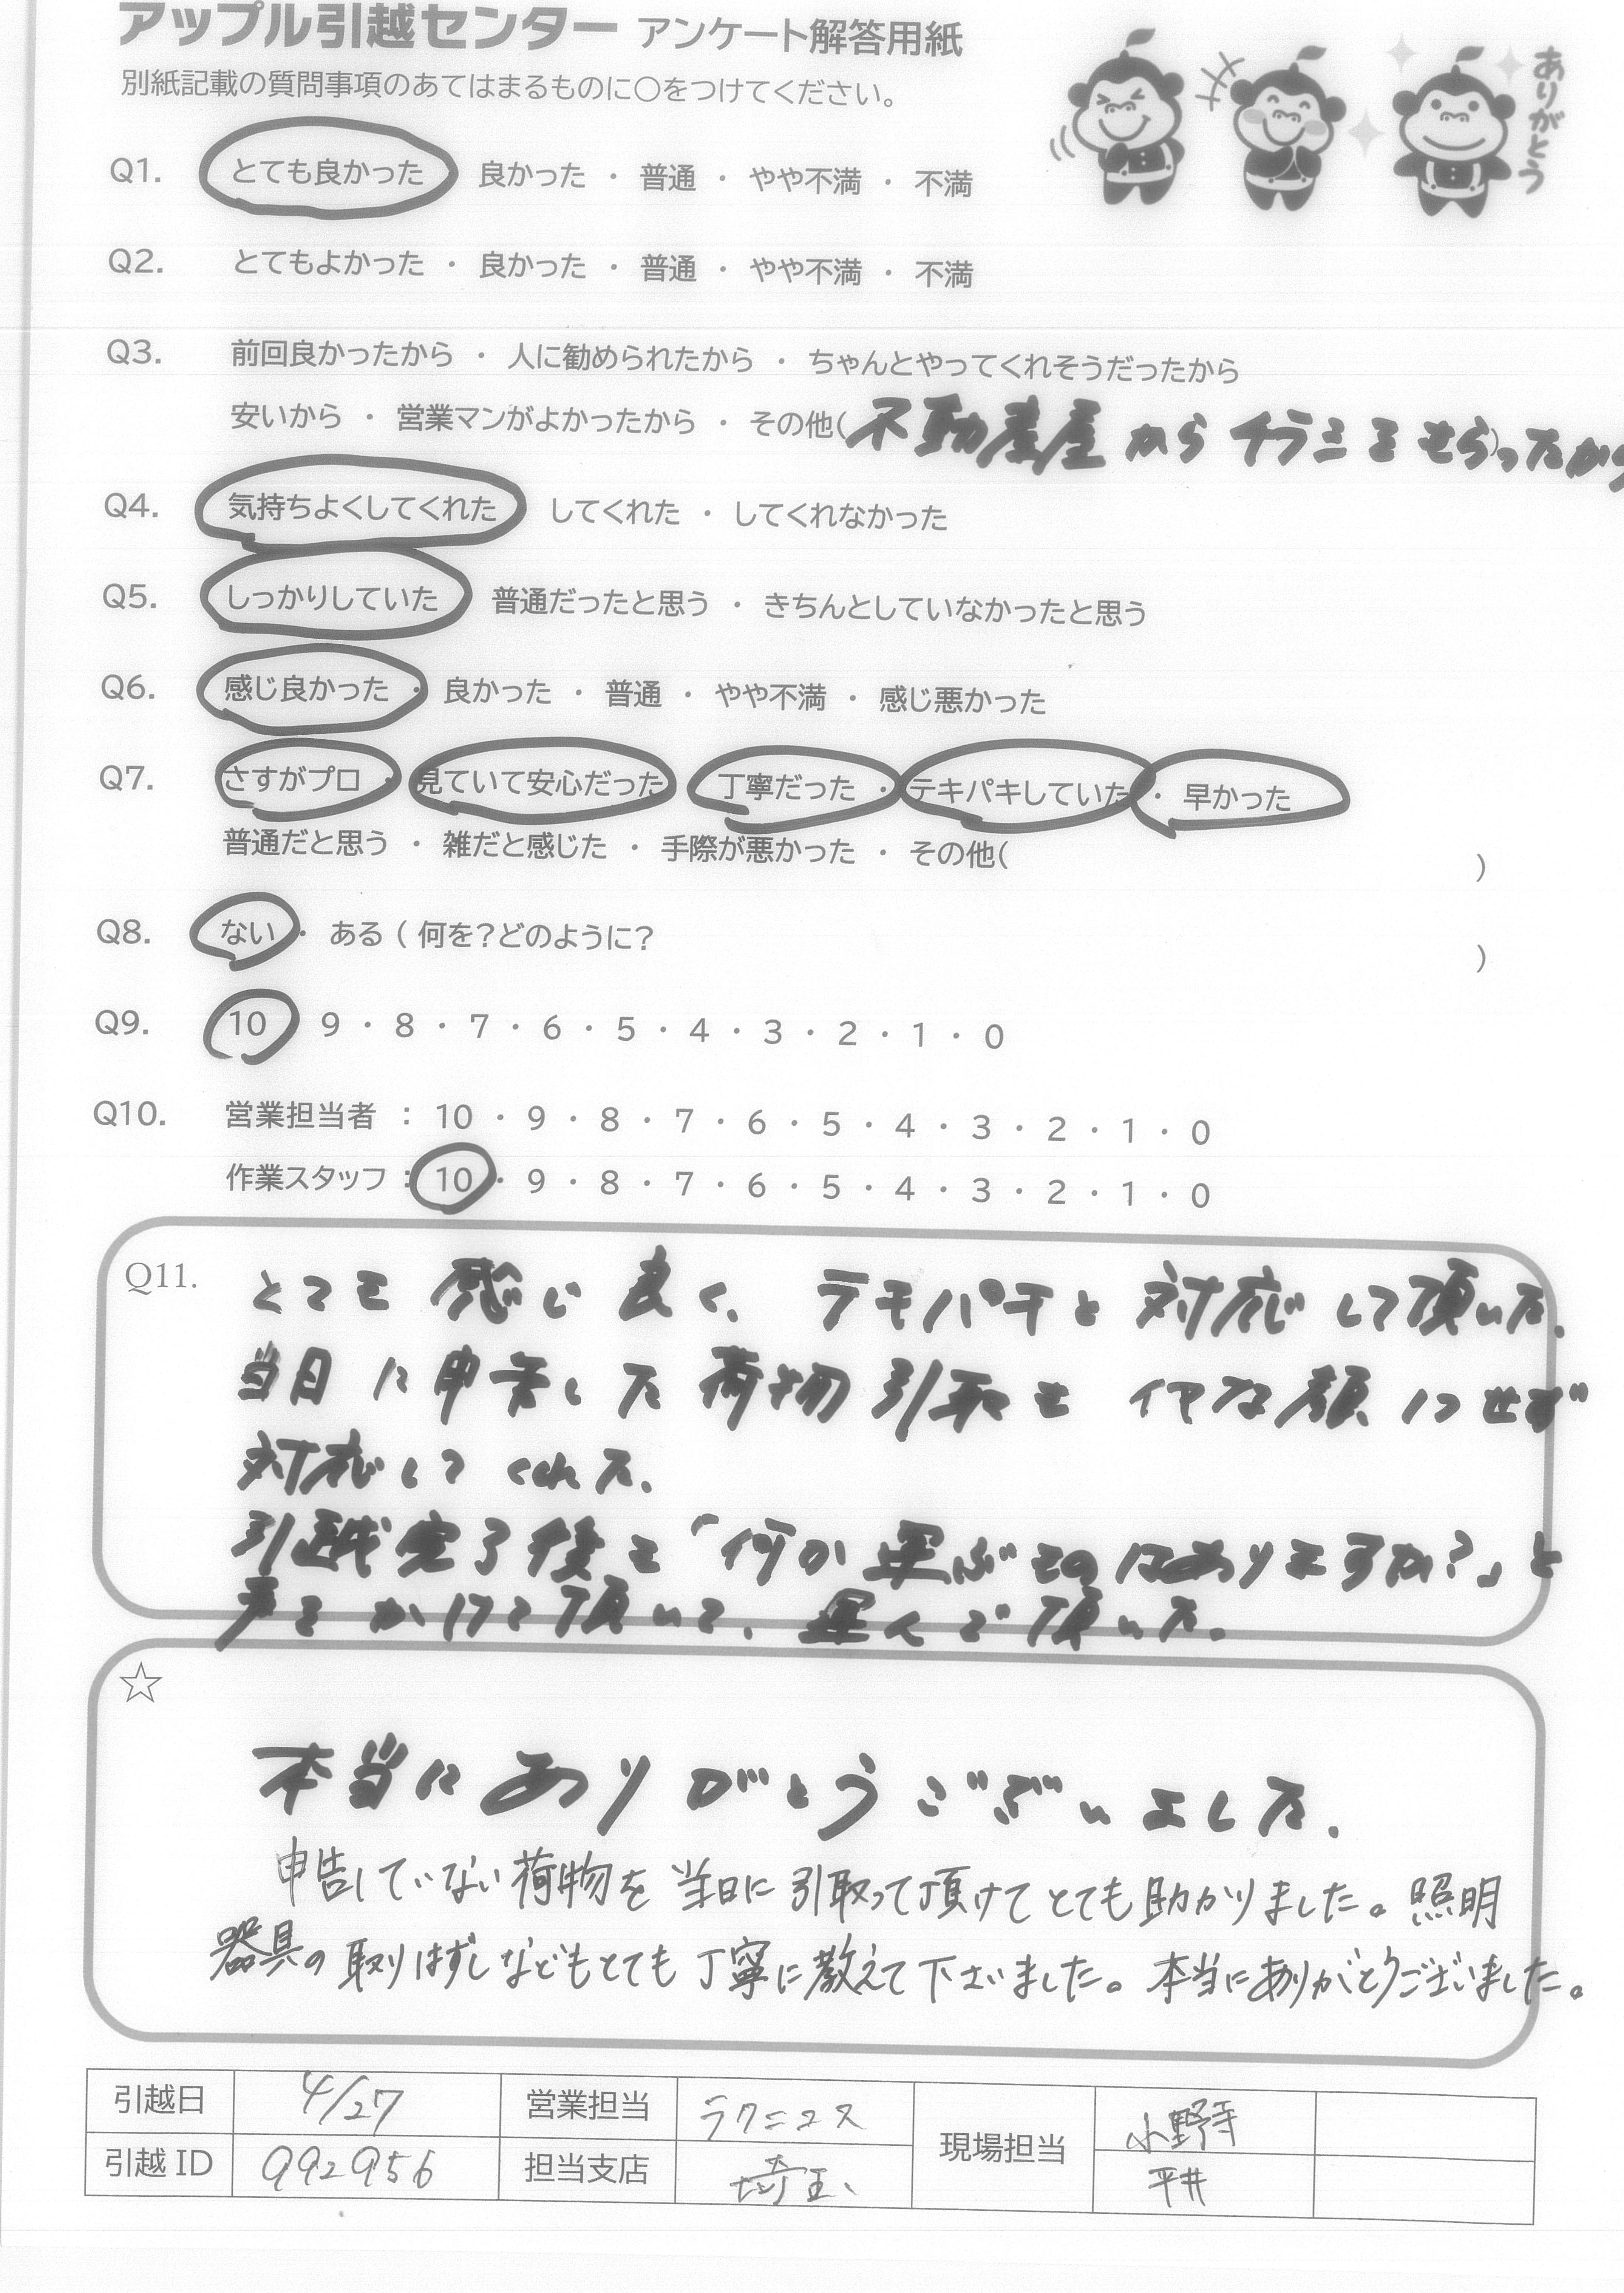 アップル引越センター アンケート解答用紙
別紙記載の質問事項のあてはまるものに○をつけてください。
ありがとう
Q1. とても良かった 良かった ・ 普通 ・ やや不満 ・ 不満
Q2. とてもよかった ・ 良かった ・ 普通 ・ やや不満 ・ 不満
Q3. 前回良かったから ・ 人に勧められたから ・ ちゃんとやってくれそうだったから
安いから ・ 営業マンがよかったから ・ その他(不動産屋からチラシをもらったから)
Q4. 気持ちよくしてくれた してくれた ・ してくれなかった
Q5. しっかりしていた 普通だったと思う ・ きちんとしていなかったと思う
Q6. 感じ良かった ・ 良かった ・ 普通 ・ やや不満 ・ 感じ悪かった
Q7. さすがプロ ・ 見ていて安心だった 丁寧だった ・ テキパキしていた ・ 早かった
普通だと思う ・ 雑だと感じた ・ 手際が悪かった ・ その他( )
Q8. ない ・ ある ( 何を?どのように? )
Q9. 10 9 ・ 8 ・ 7 ・ 6 ・ 5 ・ 4 ・ 3 ・ 2 ・ 1 ・ 0
Q10. 営業担当者 : 10 ・ 9 ・ 8 ・ 7 ・ 6 ・ 5 ・ 4 ・ 3 ・ 2 ・ 1 ・ 0
作業スタッフ : 10 ・ 9 ・ 8 ・ 7 ・ 6 ・ 5 ・ 4 ・ 3 ・ 2 ・ 1 ・ 0
Q11. とても感じ良く、テキパキと対応して頂いた。
当日に申告した荷物引取もイヤな顔1つせず
対応してくれた。
引越完了後も「何か運ぶものはありますか?」と
声をかけて頂いて、運んで頂いた。
☆
本当にありがとうございました。
申告していない荷物を当日に引取って頂けてとても助かりました。照明
器具の取りはずしなどもとても丁寧に教えて下さいました。本当にありがとうございました。
引越日 4/27 営業担当 ラクニコス 現場担当 小野寺
引越 ID 992956 担当支店 埼玉 平井